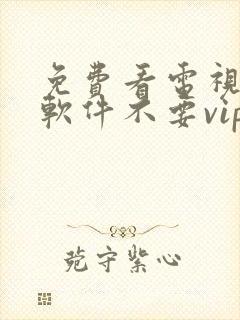 免費看電視
軟件不要vip
菀守紫心